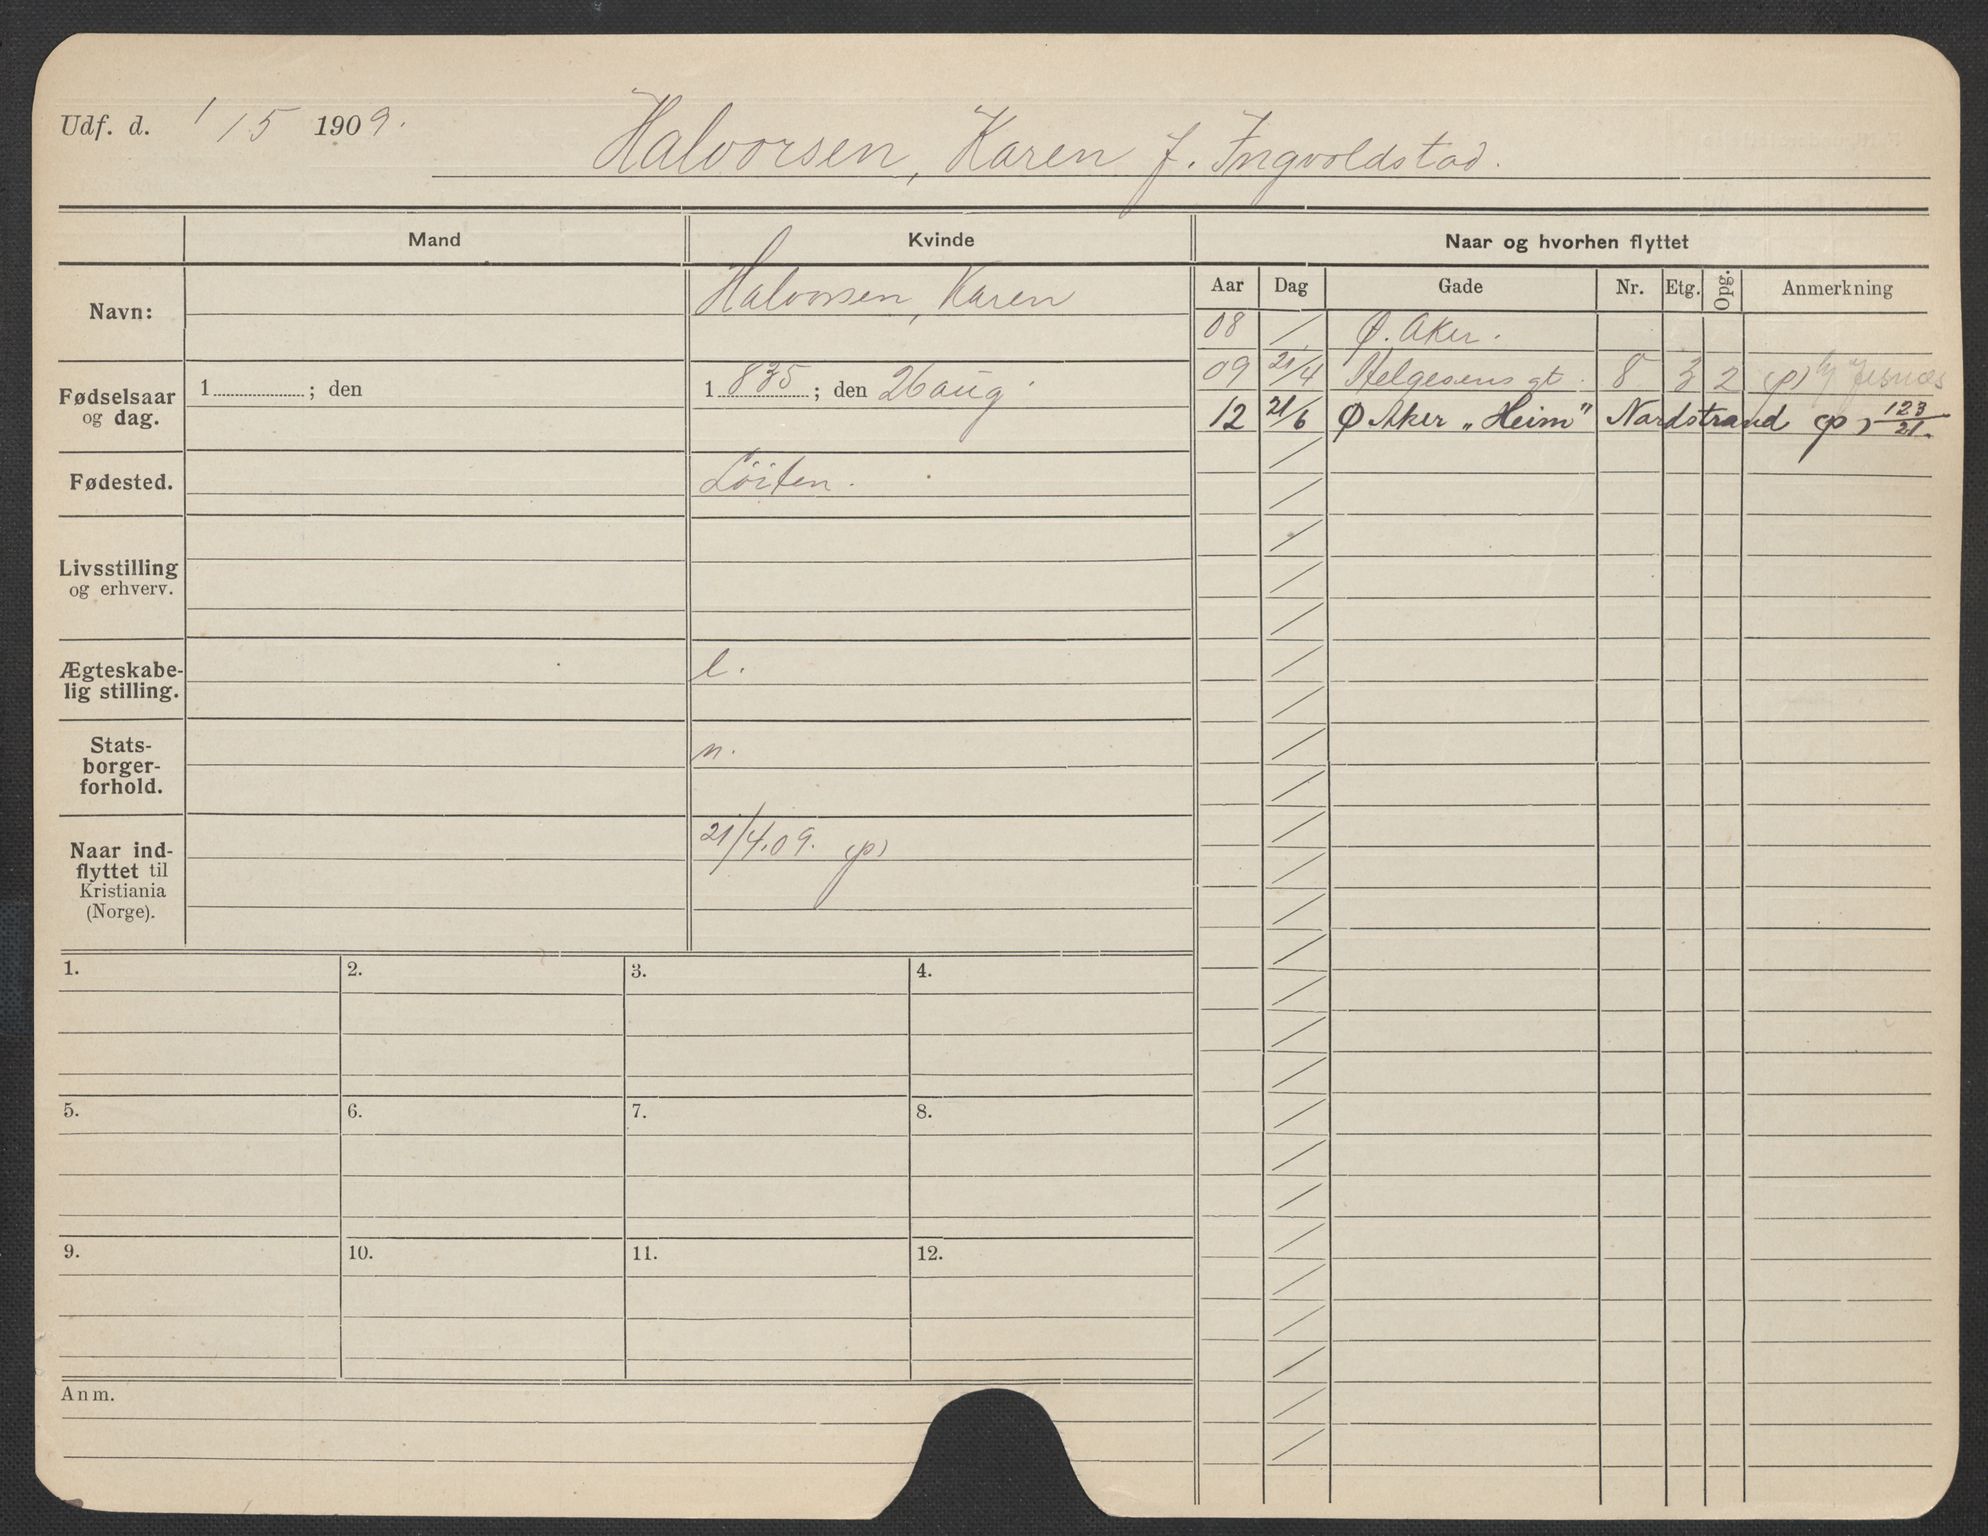 Udf. d. 1/5 1909.
Halvorsen, Karen f. Ingvoldstad.
Mand Kvinde Naar og hvorhen flyttet
Aar Dag Gade Nr. Etg. Opg. Anmerkning
Navn: Halvorsen, Karen
08 / Ø. Aker.
09 21/4 Helgesens gt. 8 3 2 (p)
12 21/6 Ø Aker „Heim" Nordstrand (p) 123/21.
Fødselsaar og dag. 1 ; den 1835 ; den 26 aug.
Fødested. Löiten.
Livsstilling og erhverv.
Ægteskabe-
lig stilling. e.
Stats-
borger-
forhold. n.
Naar ind-
flyttet til
Kristiania
(Norge). 21/4.09. (p)
1. 2. 3. 4.
5. 6. 7. 8.
9. 10. 11. 12.
Anm.